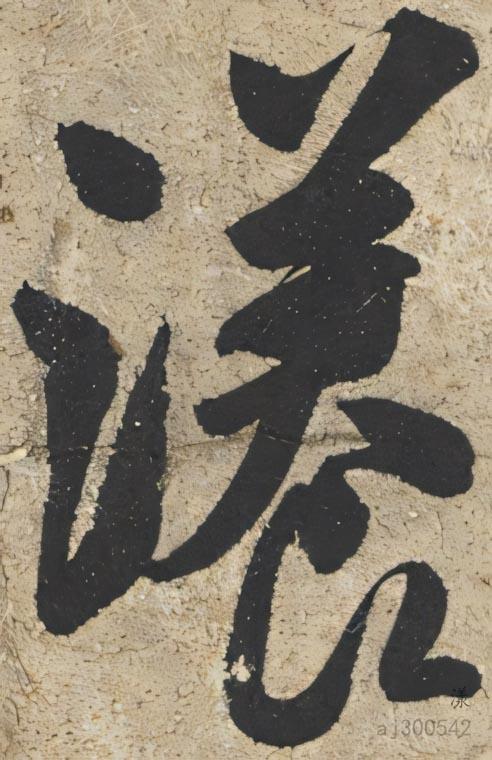 漾
漾
aj300542